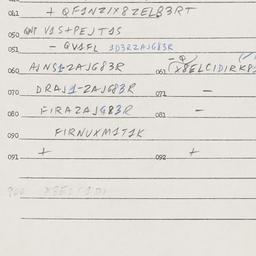 041 + QF1NZIX8ZELB3RT
050 QNP V1S+PEJT1S
051 - QV1FL 1D3RZAJG83R
060 AJNS1-2AJG83R 061 X8ELCIDIRK8
070 DRAJ1-2AJG83R 071 -
080 FIRAZAJG83R 081 -
090 FIRNUXM1T1K
091 + 092 +